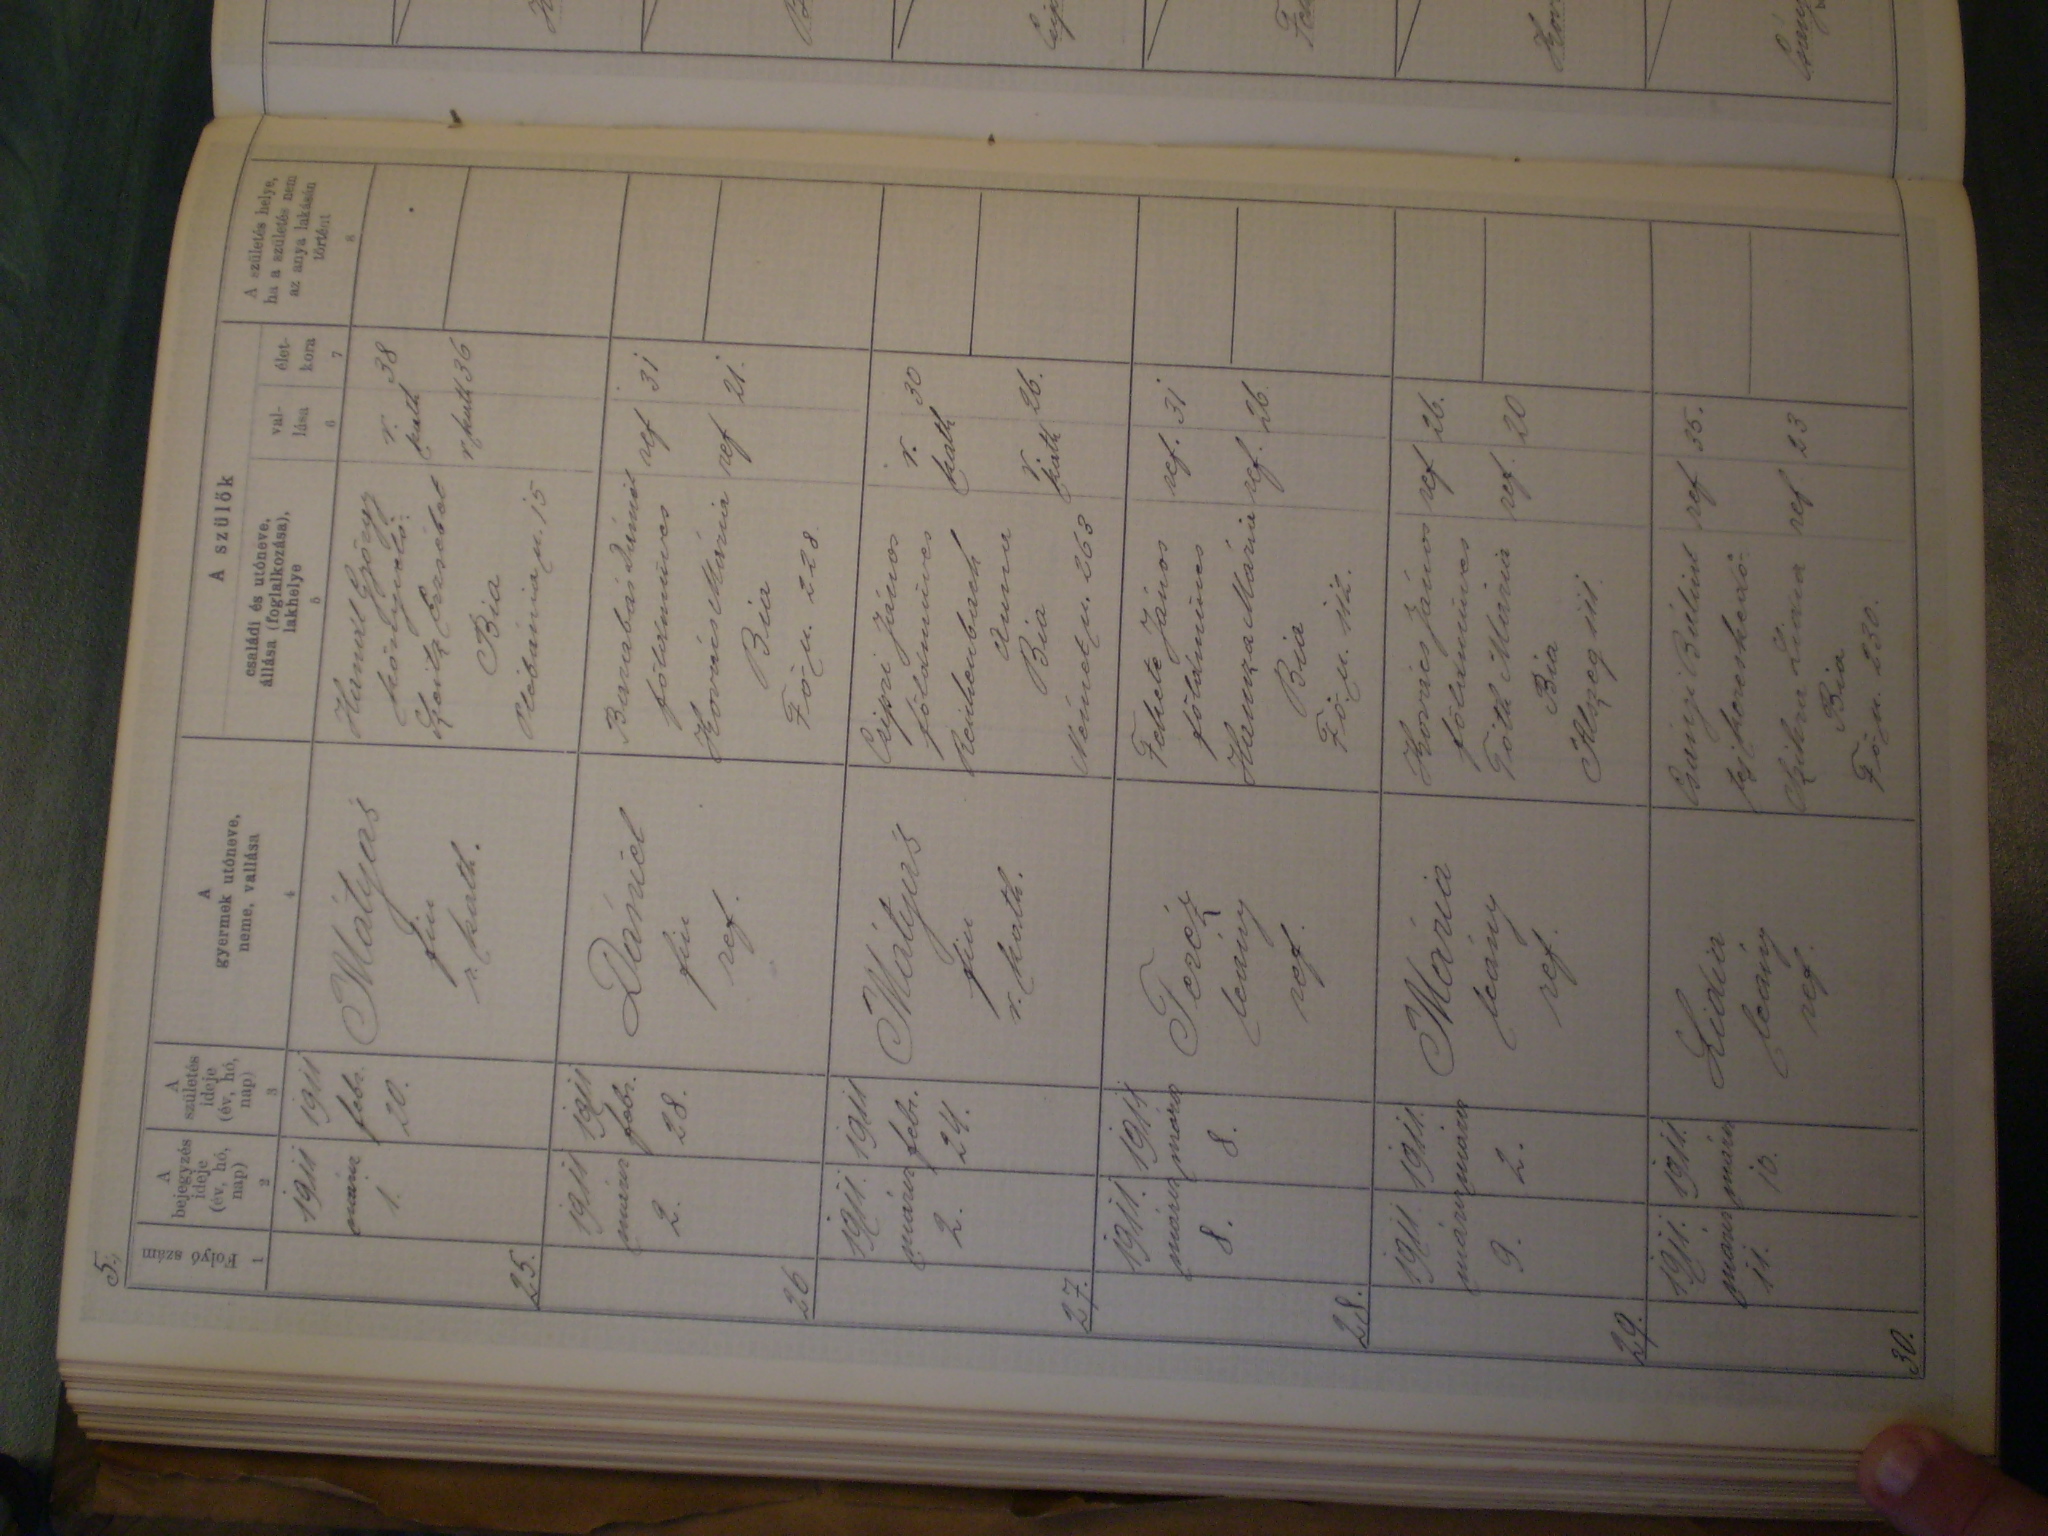 5.
A szülők
Folyó szám
A bejegyzés ideje (év, hó, nap)
A születés ideje (év, hó, nap)
A gyermek utóneve, neme, vallása
családi és utóneve, állása (foglalkozása), lakhelye
vallása
életkora
A születés helye, ha a születés nem az anya lakásán történt
1 2 3 4 5 6 7 8
25.
1911 márcz 1.
1911 febr. 20.
Mátyás
fiu
r. kath.
György r. kath 38
Erzsébet r kath 36
Bia
Plébánia u. 15
26
1911 márcz 2.
1911 febr. 28.
Dániel
fiu
ref.
Barabás Dániel ref 31
földmüves
Kovács Mária ref 21.
Bia
Fö u. 228.
27.
1911. márcz 2.
1911 febr. 24.
Mátyás
fiu
r. kath.
Csipri János r. kath 30
földmüves
Reichenbach Anna r. kath 26.
Bia
Német u. 263
28.
1911. márcz 8.
1911 márcz 8.
Teréz
leány
ref.
Fekete János ref. 31
földmüves
Hamza Mária ref. 26.
Bia
Fö u. 112.
29.
1911. márcz 9.
1911. márcz 2.
Mária
leány
ref.
Kovács János ref 26.
földmüves
Tóth Mária ref. 20
Bia
Alszeg 111.
30.
1911. márcz 11.
1911. márcz 10.
Lidia
leány
ref.
Bálint ref 35.
Szikra Lidia ref 23
Bia
Fö u. 230.